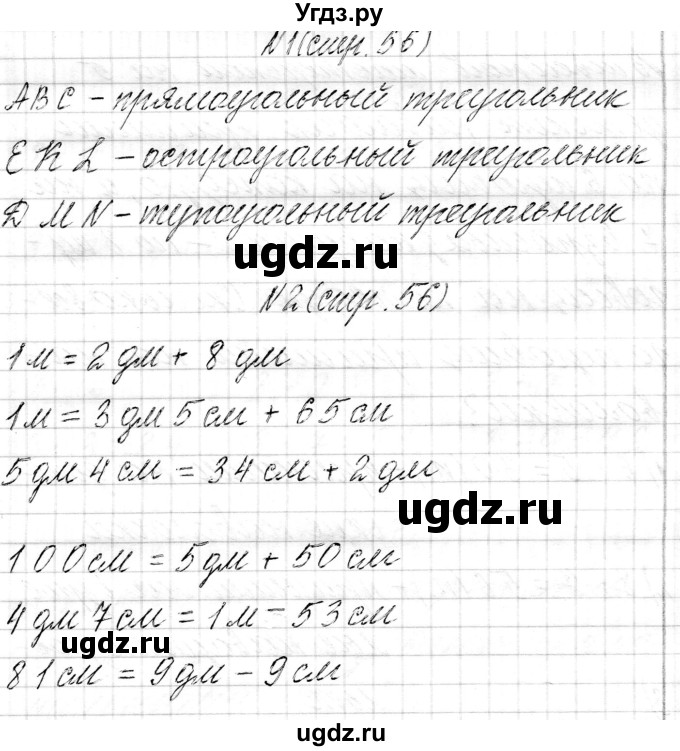 Угдз.ру
N1(стр. 56)
ABC - прямоугольный треугольник
EKL - остроугольный треугольник
DMN - тупоугольный треугольник
ugdz.ru
N2(стр. 56)
1м = 2дм + 8дм
1м = 3дм 5см + 65см
5дм 4см = 34см + 2дм
ugdz.ru
100см = 5дм + 50см
4дм 7см = 1м - 53см
ugdz.ru
81см = 9дм - 9см
ugdz.ru